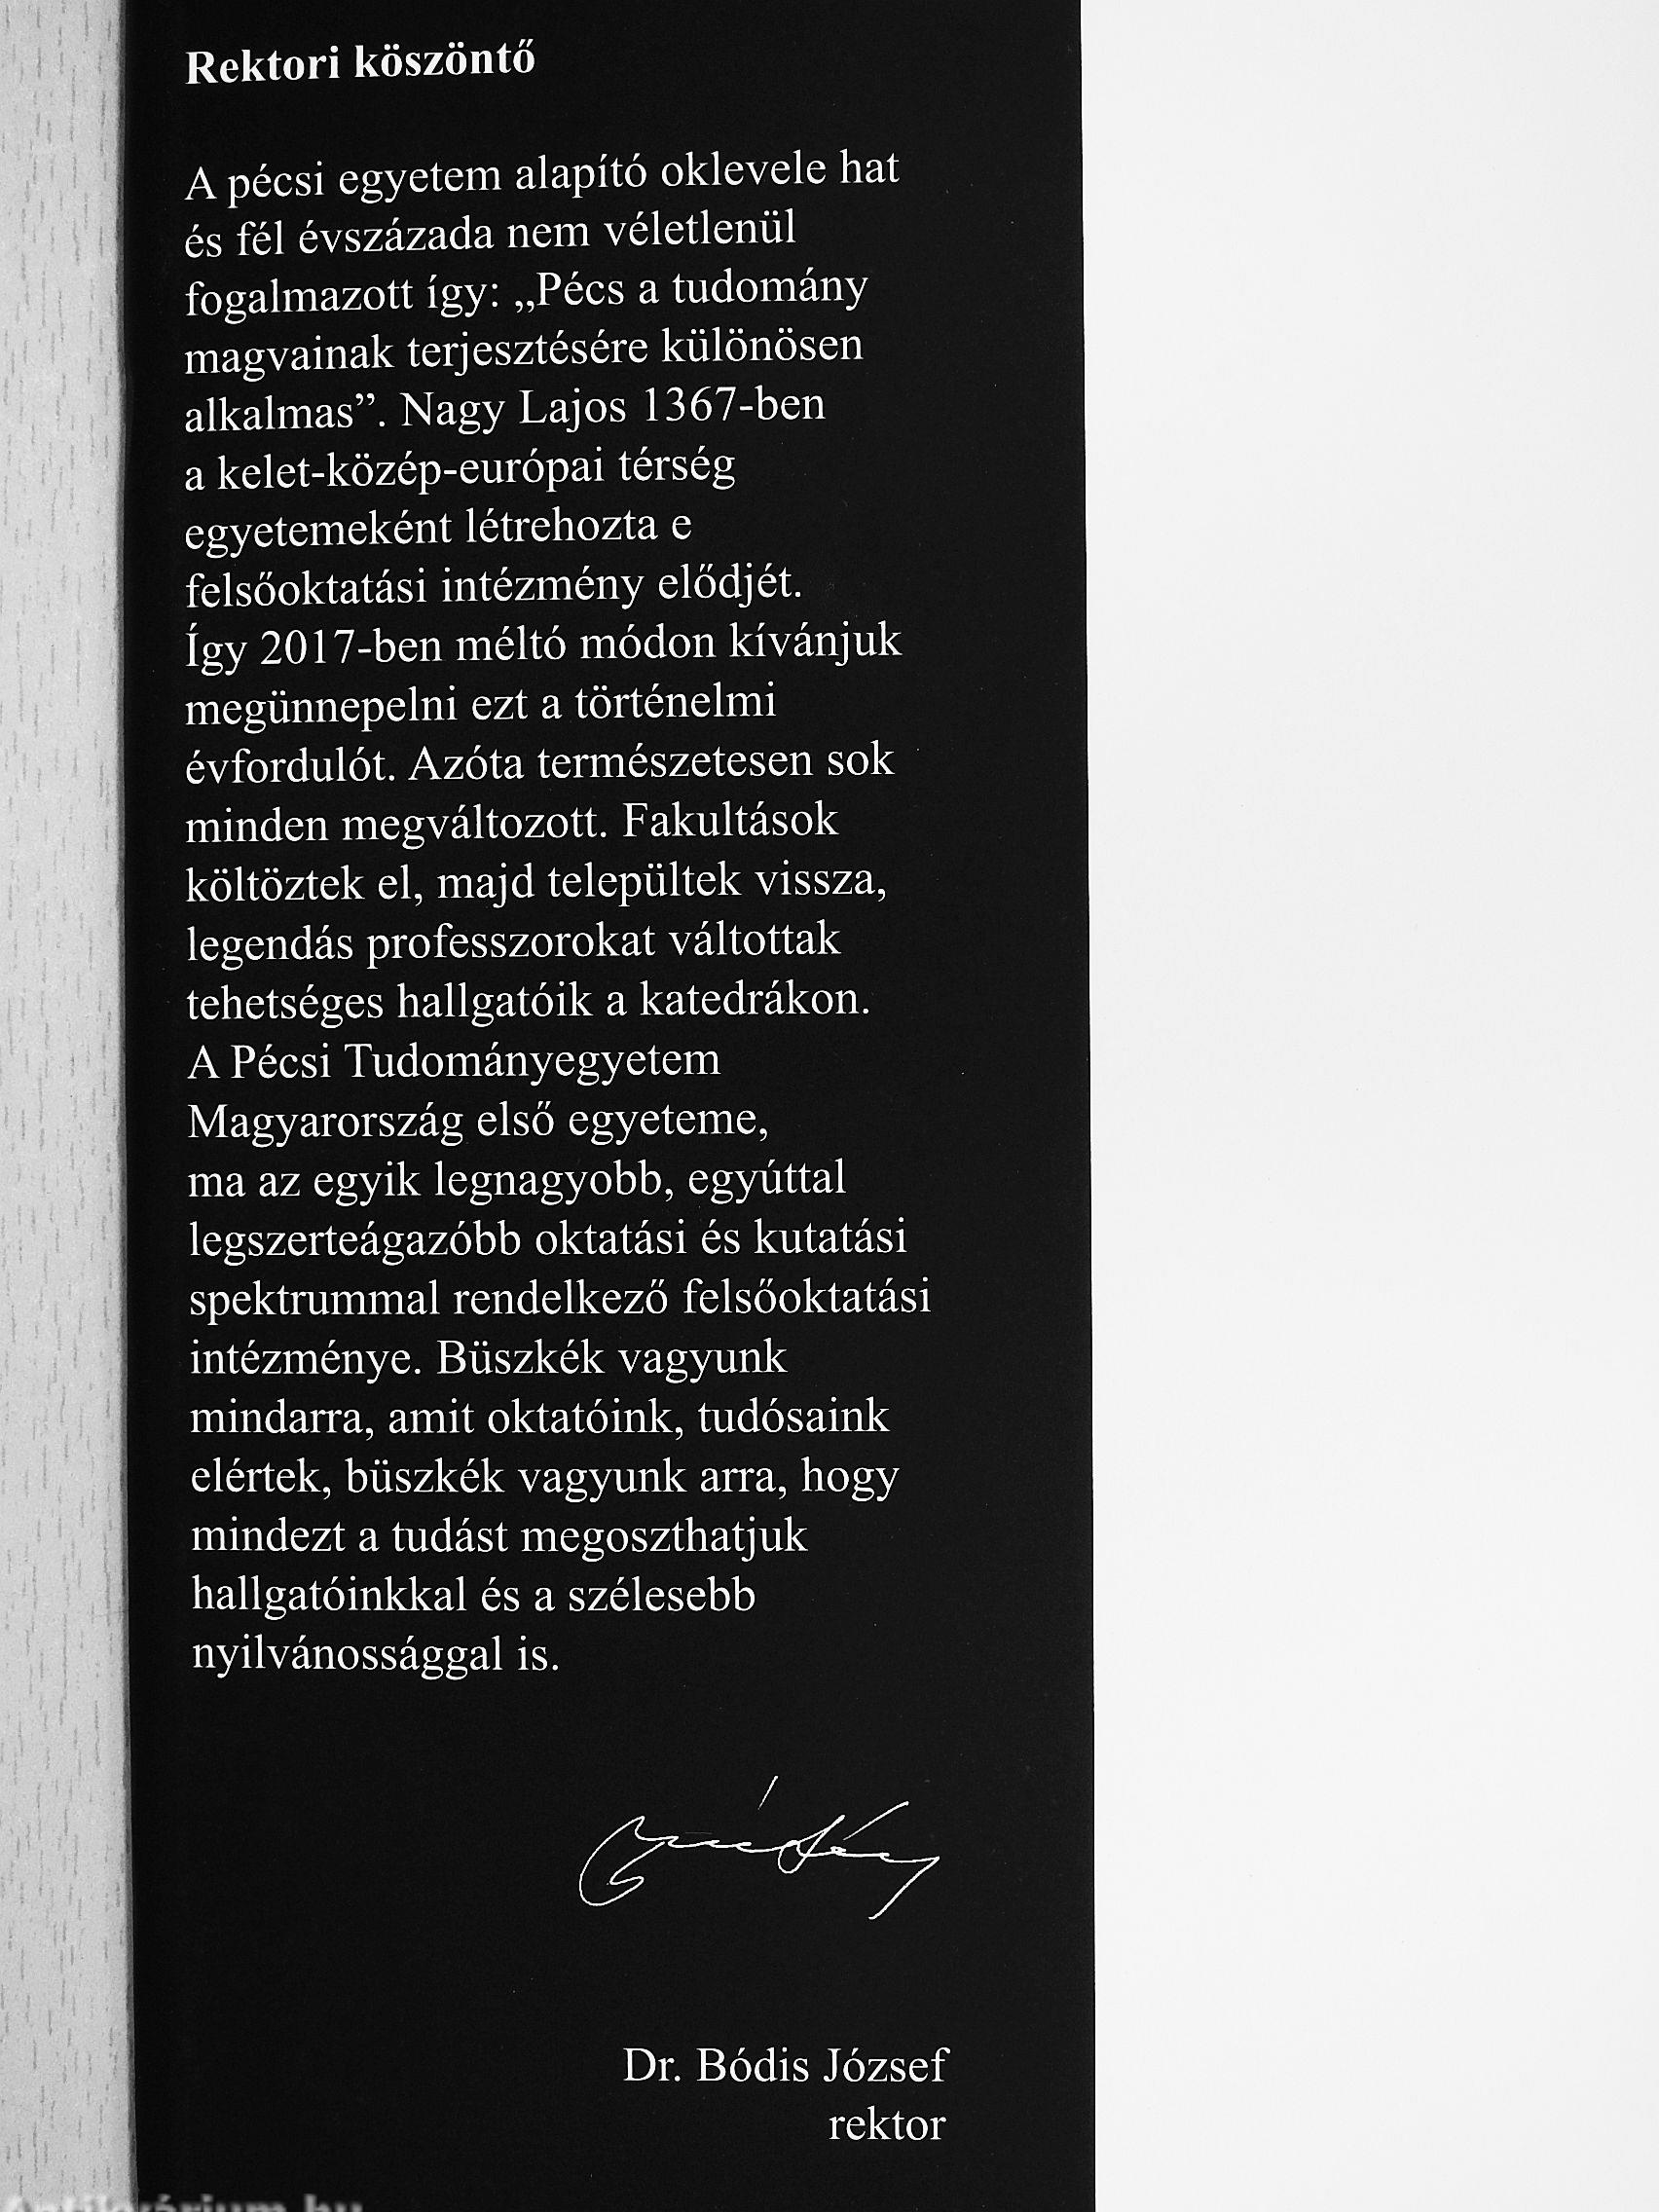 Rektori köszöntő
A pécsi egyetem alapító oklevele hat
és fél évszázada nem véletlenül
fogalmazott így: „Pécs a tudomány
magvainak terjesztésére különösen
alkalmas”. Nagy Lajos 1367-ben
a kelet-közép-európai térség
egyetemeként létrehozta e
felsőoktatási intézmény elődjét.
Így 2017-ben méltó módon kívánjuk
megünnepelni ezt a történelmi
évfordulót. Azóta természetesen sok
minden megváltozott. Fakultások
költöztek el, majd települtek vissza,
legendás professzorokat váltottak
tehetséges hallgatóik a katedrákon.
A Pécsi Tudományegyetem
Magyarország első egyeteme,
ma az egyik legnagyobb, egyúttal
legszerteágazóbb oktatási és kutatási
spektrummal rendelkező felsőoktatási
intézménye. Büszkék vagyunk
mindarra, amit oktatóink, tudósaink
elértek, büszkék vagyunk arra, hogy
mindezt a tudást megoszthatjuk
hallgatóinkkal és a szélesebb
nyilvánossággal is.
Dr. Bódis József
rektor